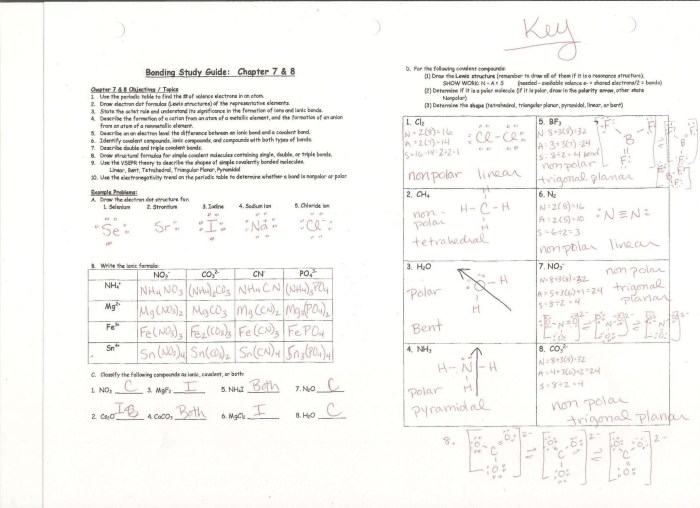 Key
Bonding Study Guide: Chapter 7 & 8
Chapter 7 & 8 Objectives / Topics
1. Use the periodic table to find the # of valence electrons in an atom.
2. Draw electron dot formulas (Lewis structures) of the representative elements.
3. State the octet rule and understand its significance in the formation of ions and ionic bonds.
4. Describe the formation of a cation from an atom of a metallic element, and the formation of an anion
from an atom of a nonmetallic element.
5. Describe on an electron level the difference between an ionic bond and a covalent bond.
6. Identify covalent compounds, ionic compounds, and compounds with both types of bonds.
7. Describe double and triple covalent bonds.
8. Draw structural formulas for simple covalent molecules containing single, double, or triple bonds.
9. Use the VSEPR theory to describe the shapes of simple covalently bonded molecules.
Linear, Bent, Tetrahedral, Triangular Planar, Pyramidal
10. Use the electronegativity trend on the periodic table to determine whether a bond is nonpolar or polar
Example Problems:
A. Draw the electron dot structure for:
1. Selenium 2. Strontium 3. Iodine 4. Sodium ion 5. Chloride ion
Se Sr I Na Cl
B. Write the ionic formula:
NO₃⁻ CO₃²⁻ CN⁻ PO₄³⁻
NH₄⁺ NH₄NO₃ (NH₄)₂CO₃ NH₄CN (NH₄)₃PO₄
Mg²⁺ Mg(NO₃)₂ MgCO₃ Mg(CN)₂ Mg₃(PO₄)₂
Fe³⁺ Fe(NO₃)₃ Fe₂(CO₃)₃ Fe(CN)₃ FePO₄
Sn⁴⁺ Sn(NO₃)₄ Sn(CO₃)₂ Sn(CN)₄ Sn₃(PO₄)₄
C. Classify the following compounds as ionic, covalent, or both:
1. NO₂ C 3. MgF₂ I 5. NH₄I Both 7. N₂O C
2. 4. CaCO₃ Both 6. MgCl₂ I 8. H₂O C
D. For the following covalent compounds:
(1) Draw the Lewis structure (remember to draw all of them if it is a resonance structure).
SHOW WORK: N - A = S (needed - available valence e- = shared electrons/2 = bonds)
(2) Determine if it is a polar molecule (if polar, draw in the polarity arrow, other state
Nonpolar)
(3) Determine the shape (tetrahedral, triangular planar, pyramidal, linear, or bent)
1. Cl₂
N = 2(8) = 16
A = 2(7) = 14
S = 16-14 = 2 ÷ 2 = 1
Cl - Cl
nonpolar linear
5. BF₃
N = 8+3(8) = 32
A = 3+3(7) = 24
S = 8 ÷ 2 = 4 bond
nonpolar
trigonal planar
2. CH₄
non-
polar
H-C-H
H
tetrahedral
6. N₂
N = 2(8) = 16
A = 2(5) = 10
S = 6 ÷ 2 = 3
:N≡N:
nonpolar linear
3. H₂O
polar
O - H
H
Bent
7. NO₃⁻
N = 8+3(8) = 32
A = 5+3(6)+1 = 24
S = 8 ÷ 2 = 4
non polar
trigonal
planar
4. NH₃
H-N-H
H
polar
pyramidal
8. CO₃²⁻
N = 8+3(8) = 32
A = 4+3(6)+2 = 24
S = 8 ÷ 2 = 4
non polar
trigonal planar
8.